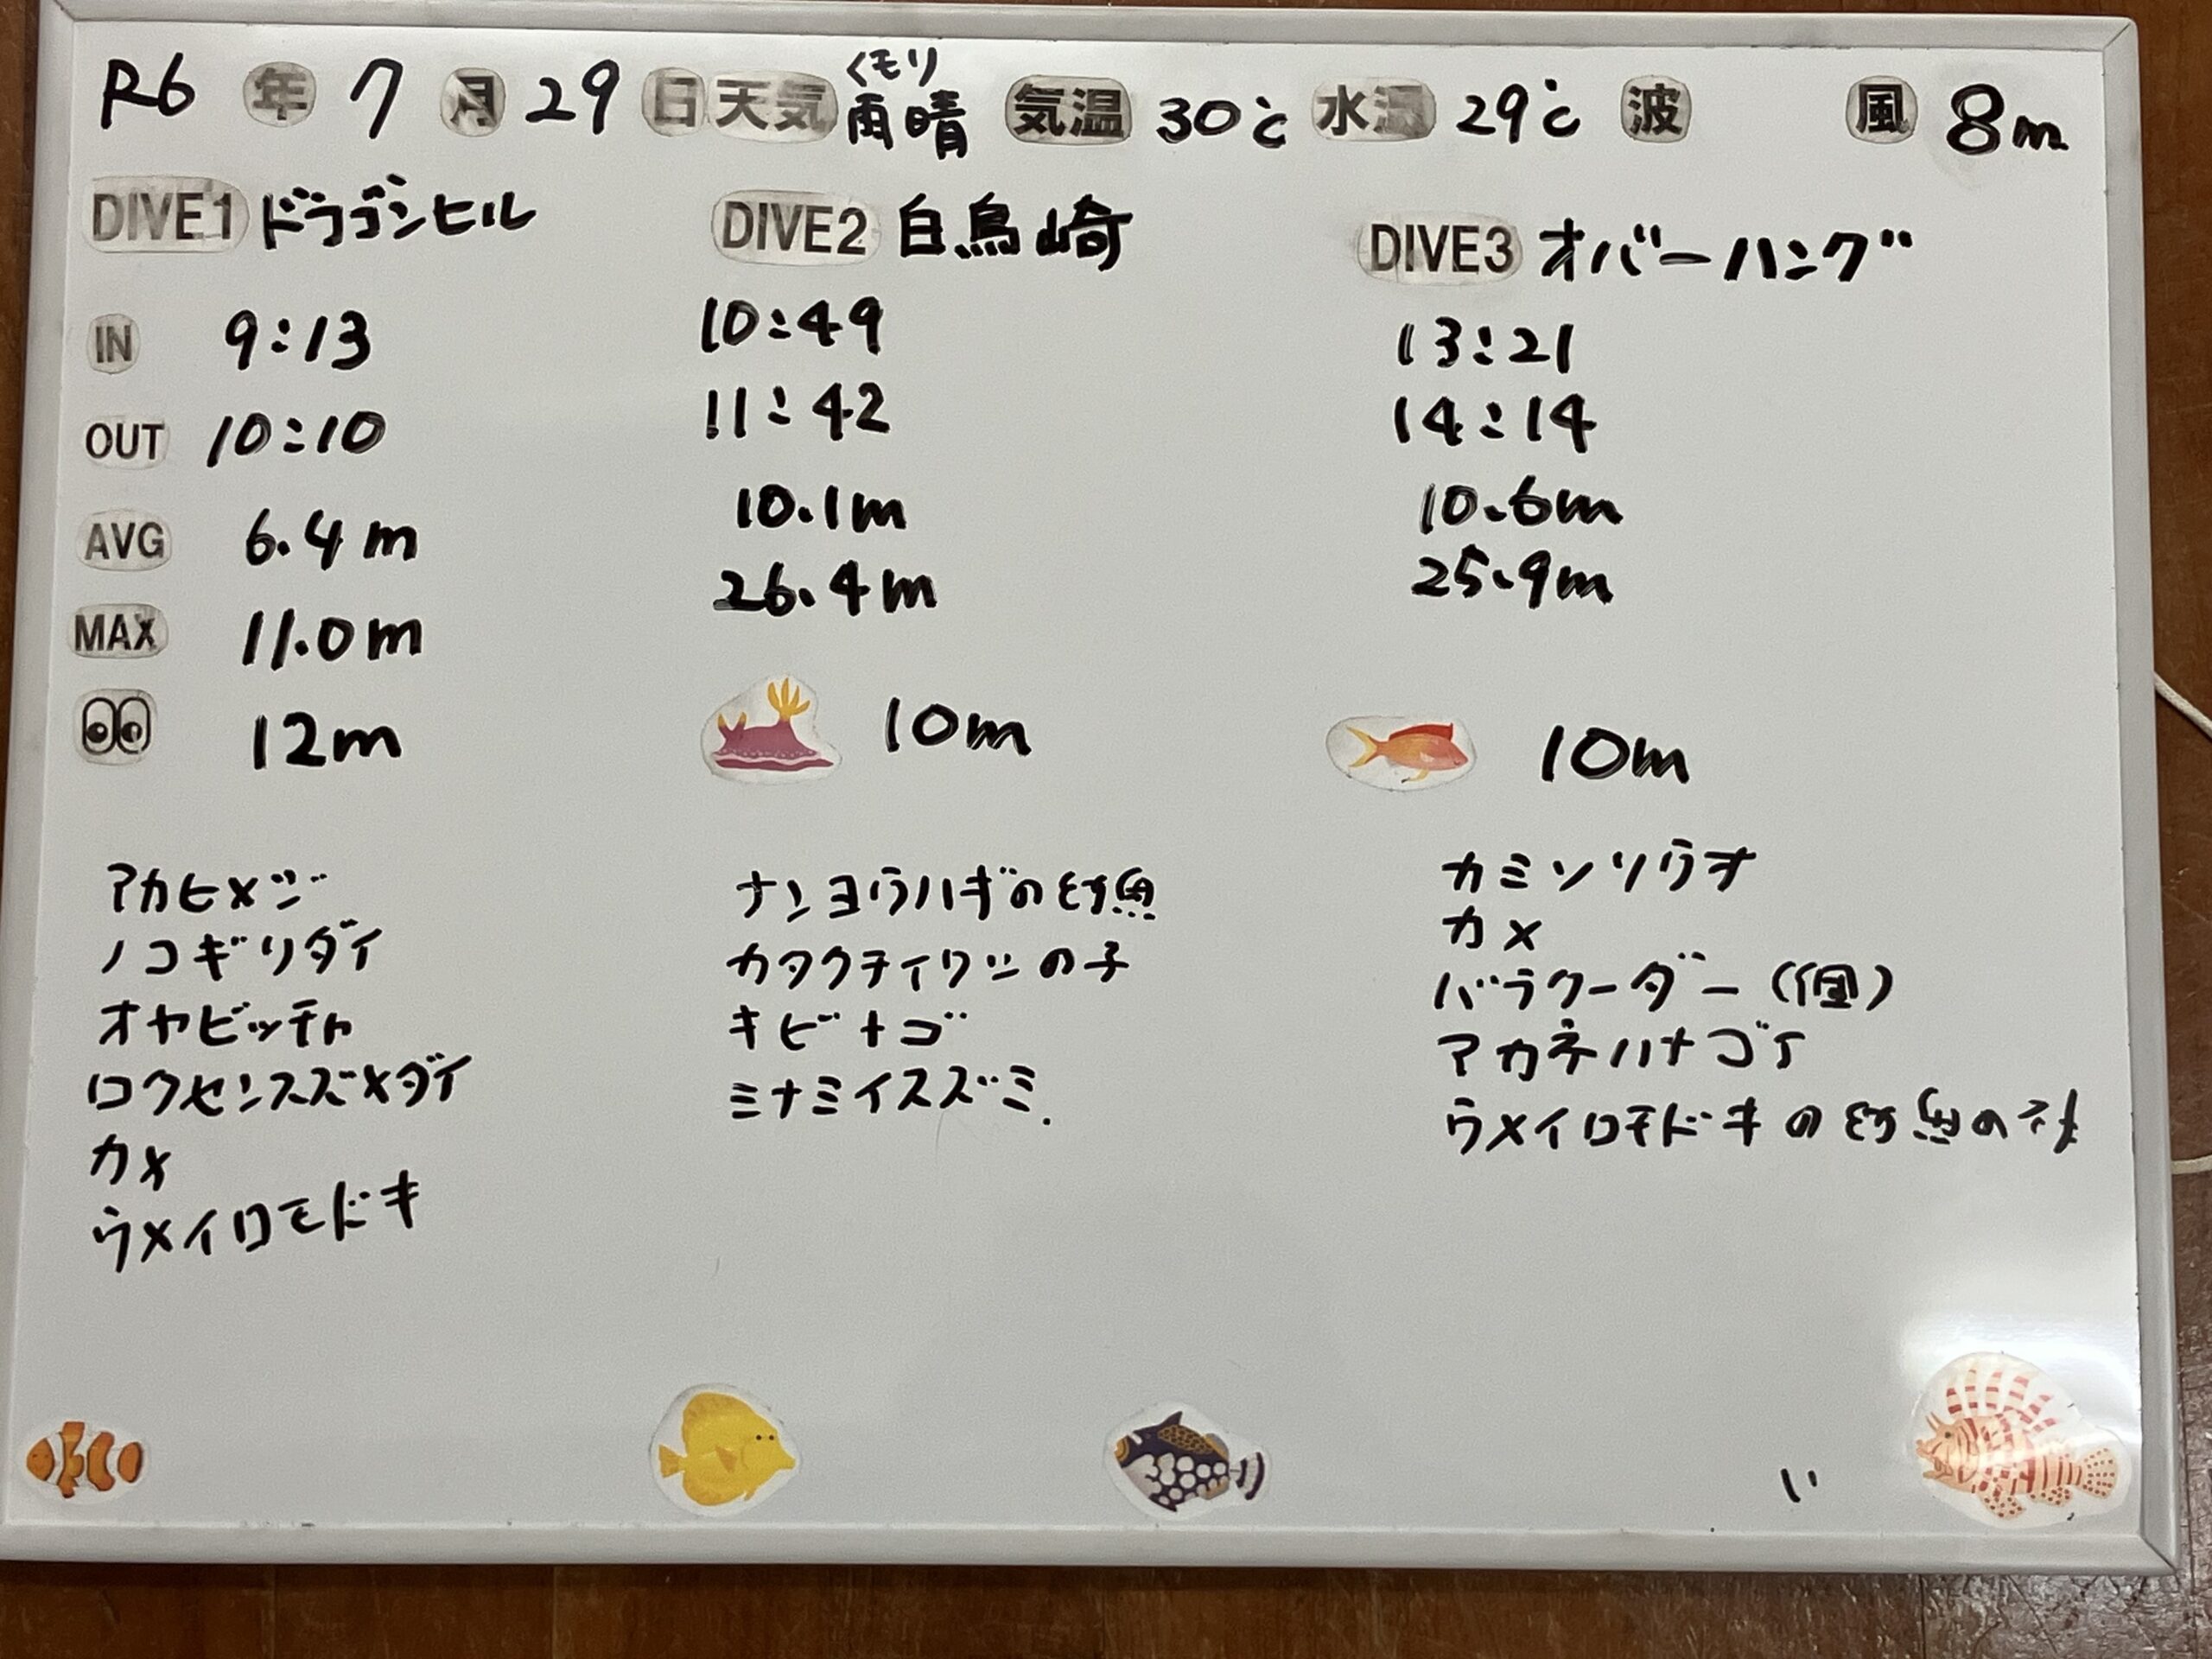 くモリ
R6 年 7 月 29 日 天気 雨晴 気温 30℃ 水温 29℃ 波 風 8m
DIVE1 ドラゴンヒル
IN 9:13
OUT 10:10
AVG 6.4m
MAX 11.0m
12m
アカヒメジ
ノコギリダイ
オヤビッチャ
ロクセンスズメダイ
カメ
ウメイロモドキ
DIVE2 白鳥崎
10:49
11:42
10.1m
26.4m
10m
ナンヨウハギの幼魚
カタクチイワシの子
キビナゴ
ミナミイスズミ.
DIVE3 オバーハング
13:21
14:14
10.6m
25.9m
10m
カミソリウオ
カメ
バラクーダー(個)
アカネハナゴイ
ウメイロモドキの幼魚の